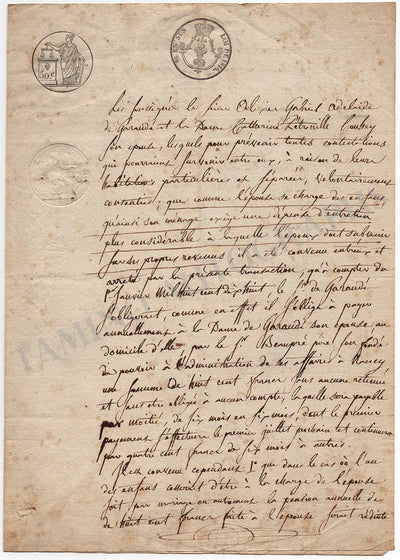 50c
Les soussignés le sieur Alexis Gabriel Adelaïde
de Garaudé et la Dame Catherine
son épouse, lesquels pour prévenir toutes contestations
qui pourraient survenir entr'eux, à raison de leurs
habitations particulières et séparées, volontairement
consenties; que comme l'épouse se charge des enfans,
qu'ainsi son ménage exige une dépense d'entretien
plus considérable à laquelle l'époux doit subvenir
sur ses propres revenus, il a été convenu entr'eux et
arrêté par la présente transaction, qu'à compter du
1er Janvier Mil huit cent dix huit, le Sr. de Garaudé
s'obligerait, comme en effet il s'oblige à payer
annuellement à la Dame de Garaudé son épouse, au
domicile d'elle, par le Sr. Beaupré, son fondé
de pouvoir à l'administration de ses affaires à Nancy
une somme de huit cent francs sans aucune retenue
et sans être obligé à aucun compte, laquelle sera payable
par moitié, de six mois en six mois, dont le premier
payement s'effectuera le premier juillet prochain et continuera
par quatre cent francs de six mois à autres.
Il est convenu cependant 1° que dans le cas où l'un
des enfans cesserait d'être à la charge de l'épouse
soit par mariage ou autrement la pension annuelle de
de huit cent francs faite à l'épouse serait réduite